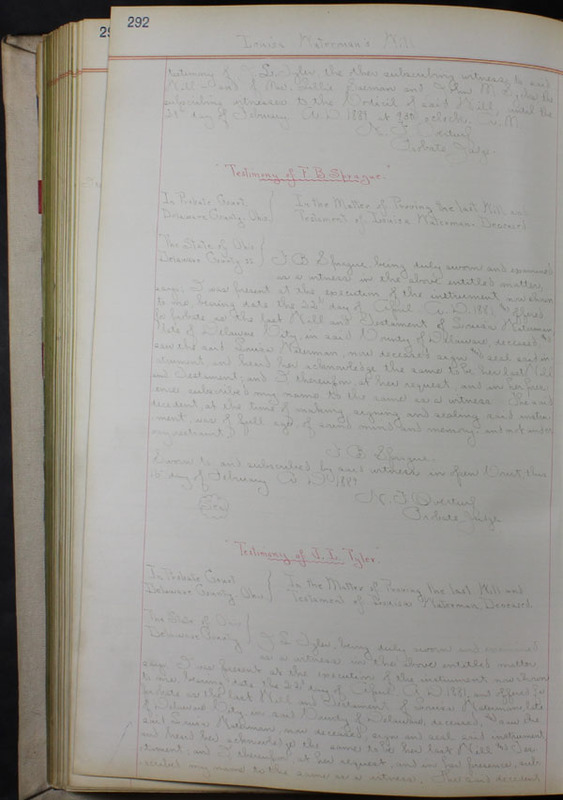 292
Louisa Waterman's Will
testimony of L. Tyler the other subscribing witness to said
Will and of Mrs. Sallie and the
subscribing witnesses to the Codicil of said Will, until the
day of February A. D. 1889 at 9 30 o'clock A. M.
Probate Judge.
"Testimony of F. B. Sprague."
In Probate Court,
Delaware County, Ohio
In the Matter of Proving the last Will and
Testament of Louisa Waterman, Deceased
The State of Ohio
Delaware County ss
F. B. Sprague, being duly sworn and examined
as a witness in the above entitled matter,
says, I was present at the execution of the instrument now shown
to me, bearing date the 22d day of April A. D. 1881, & offered
for probate as the last Will and Testament of Louisa Waterman
late of Delaware City, in said County of Delaware, deceased, &
saw the said Louisa Waterman, now deceased sign & seal said in-
strument, and heard her acknowledge the same to be her last Will
and Testament, and I thereupon, at her request, and in her pres-
ence subscribed my name to the same as a witness. The said
decedent, at the time of making, signing and sealing said instru-
ment, was of full age, of sound mind and memory, and not under
any restraint.
F. B. Sprague
Sworn to and subscribed by said witness in open Court, this
day of February A. D. 1889
Probate Judge
"Testimony of J. L. Tyler."
In Probate Court
Delaware County, Ohio
In the Matter of Proving the last Will and
Testament of Louisa Waterman, Deceased
The State of Ohio
Delaware County
J. L. Tyler, being duly sworn and examined
as a witness in the above entitled matter
says, I was present at the execution of the instrument now shown
to me, bearing date the 22d day of April A. D. 1881, and offered for
probate as the last Will and Testament of Louisa Waterman, late
of Delaware City, in said County of Delaware, deceased, & saw the
said Louisa Waterman, now deceased, sign and seal said instrument
and heard her acknowledge the same to be her last Will & Tes-
tament, and I thereupon, at her request, and in her presence, sub-
scribed my name to the same as a witness. The said decedent